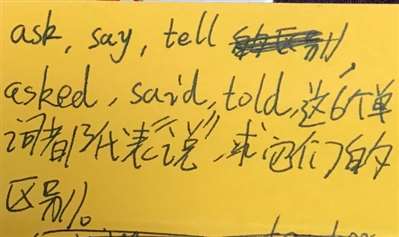 ask, say, tell
asked, said, told, 这6个单
词都代表“说”, 求它们的
区别。